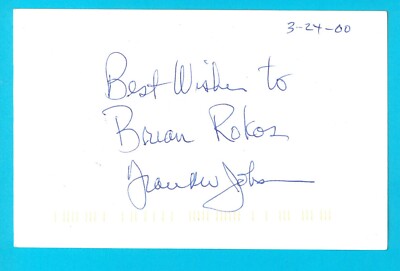 3-24-00
Best Wishes to
Brian Rokos